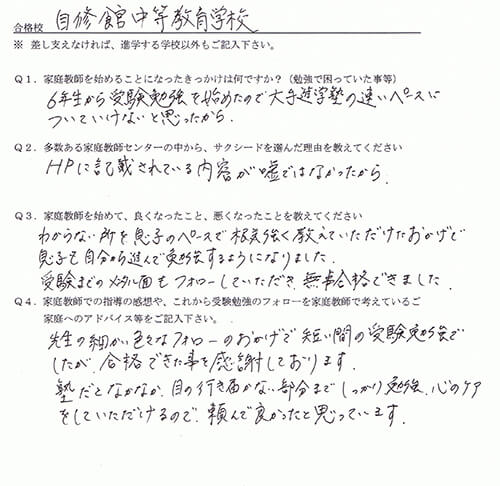 合格校 自修館中等教育学校
※ 差し支えなければ、進学する学校以外もご記入下さい。
Q1．家庭教師を始めることになったきっかけは何ですか？（勉強で困っていた事等）
6年生から受験勉強を始めたので大手進学塾の速いペースに
ついていけないと思ったから.
Q2．多数ある家庭教師センターの中から、サクシードを選んだ理由を教えてください
HPに記載されている内容が嘘ではなかったから.
Q3．家庭教師を始めて、良くなったこと、悪くなったことを教えてください
わからない所を息子のペースで根気強く教えていただけたおかげで
息子も自分から進んで勉強するようになりました.
受験までのメンタル面もフォローしていただき 無事合格できました.
Q4．家庭教師での指導の感想や、これから受験勉強のフォローを家庭教師で考えているご
家庭へのアドバイス等をご記入下さい。
先生の細かい色々なフォローのおかげで 短い間の受験勉強で
したが、合格できた事を感謝しております.
塾だとなかなか、目の行き届かない部分まで しっかり勉強、心のケア
をしていただけるので、頼んで良かったと思っています.